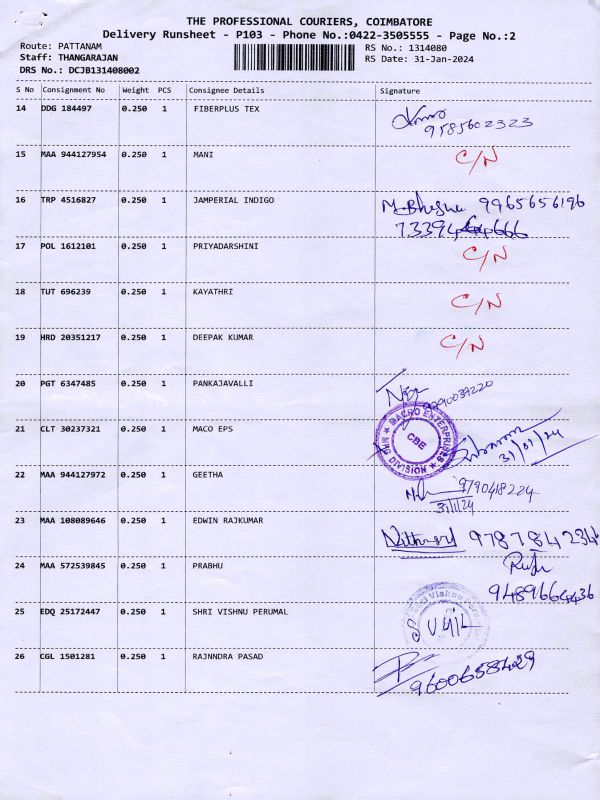 THE PROFESSIONAL COURIERS, COIMBATORE
Delivery Runsheet - P103 - Phone No.:0422-3505555 - Page No.:2
Route: PATTANAM RS No.: 1314080
Staff: THANGARAJAN RS Date: 31-Jan-2024
DRS No.: DCJB131408002
S No Consignment No Weight PCS Consignee Details Signature
14 DDG 184497 0.250 1 FIBERPLUS TEX
9585602323
15 MAA 944127954 0.250 1 MANI C/N
16 TRP 4516827 0.250 1 JAMPERIAL INDIGO 9965656196
17 POL 1612101 0.250 1 PRIYADARSHINI C/N
18 TUT 696239 0.250 1 KAYATHRI C/N
19 HRD 20351217 0.250 1 DEEPAK KUMAR C/N
20 PGT 6347485 0.250 1 PANKAJAVALLI
21 CLT 30237321 0.250 1 MACO EPS MACRO ENTERPRISES MFG DIVISION CBE 31/01/24
22 MAA 944127972 0.250 1 GEETHA 9790418224
31/1/24
23 MAA 108089646 0.250 1 EDWIN RAJKUMAR 978784234
24 MAA 572539845 0.250 1 PRABHU
9489664436
25 EDQ 25172447 0.250 1 SHRI VISHNU PERUMAL
26 CGL 1501281 0.250 1 RAJNNDRA PASAD 9600658429